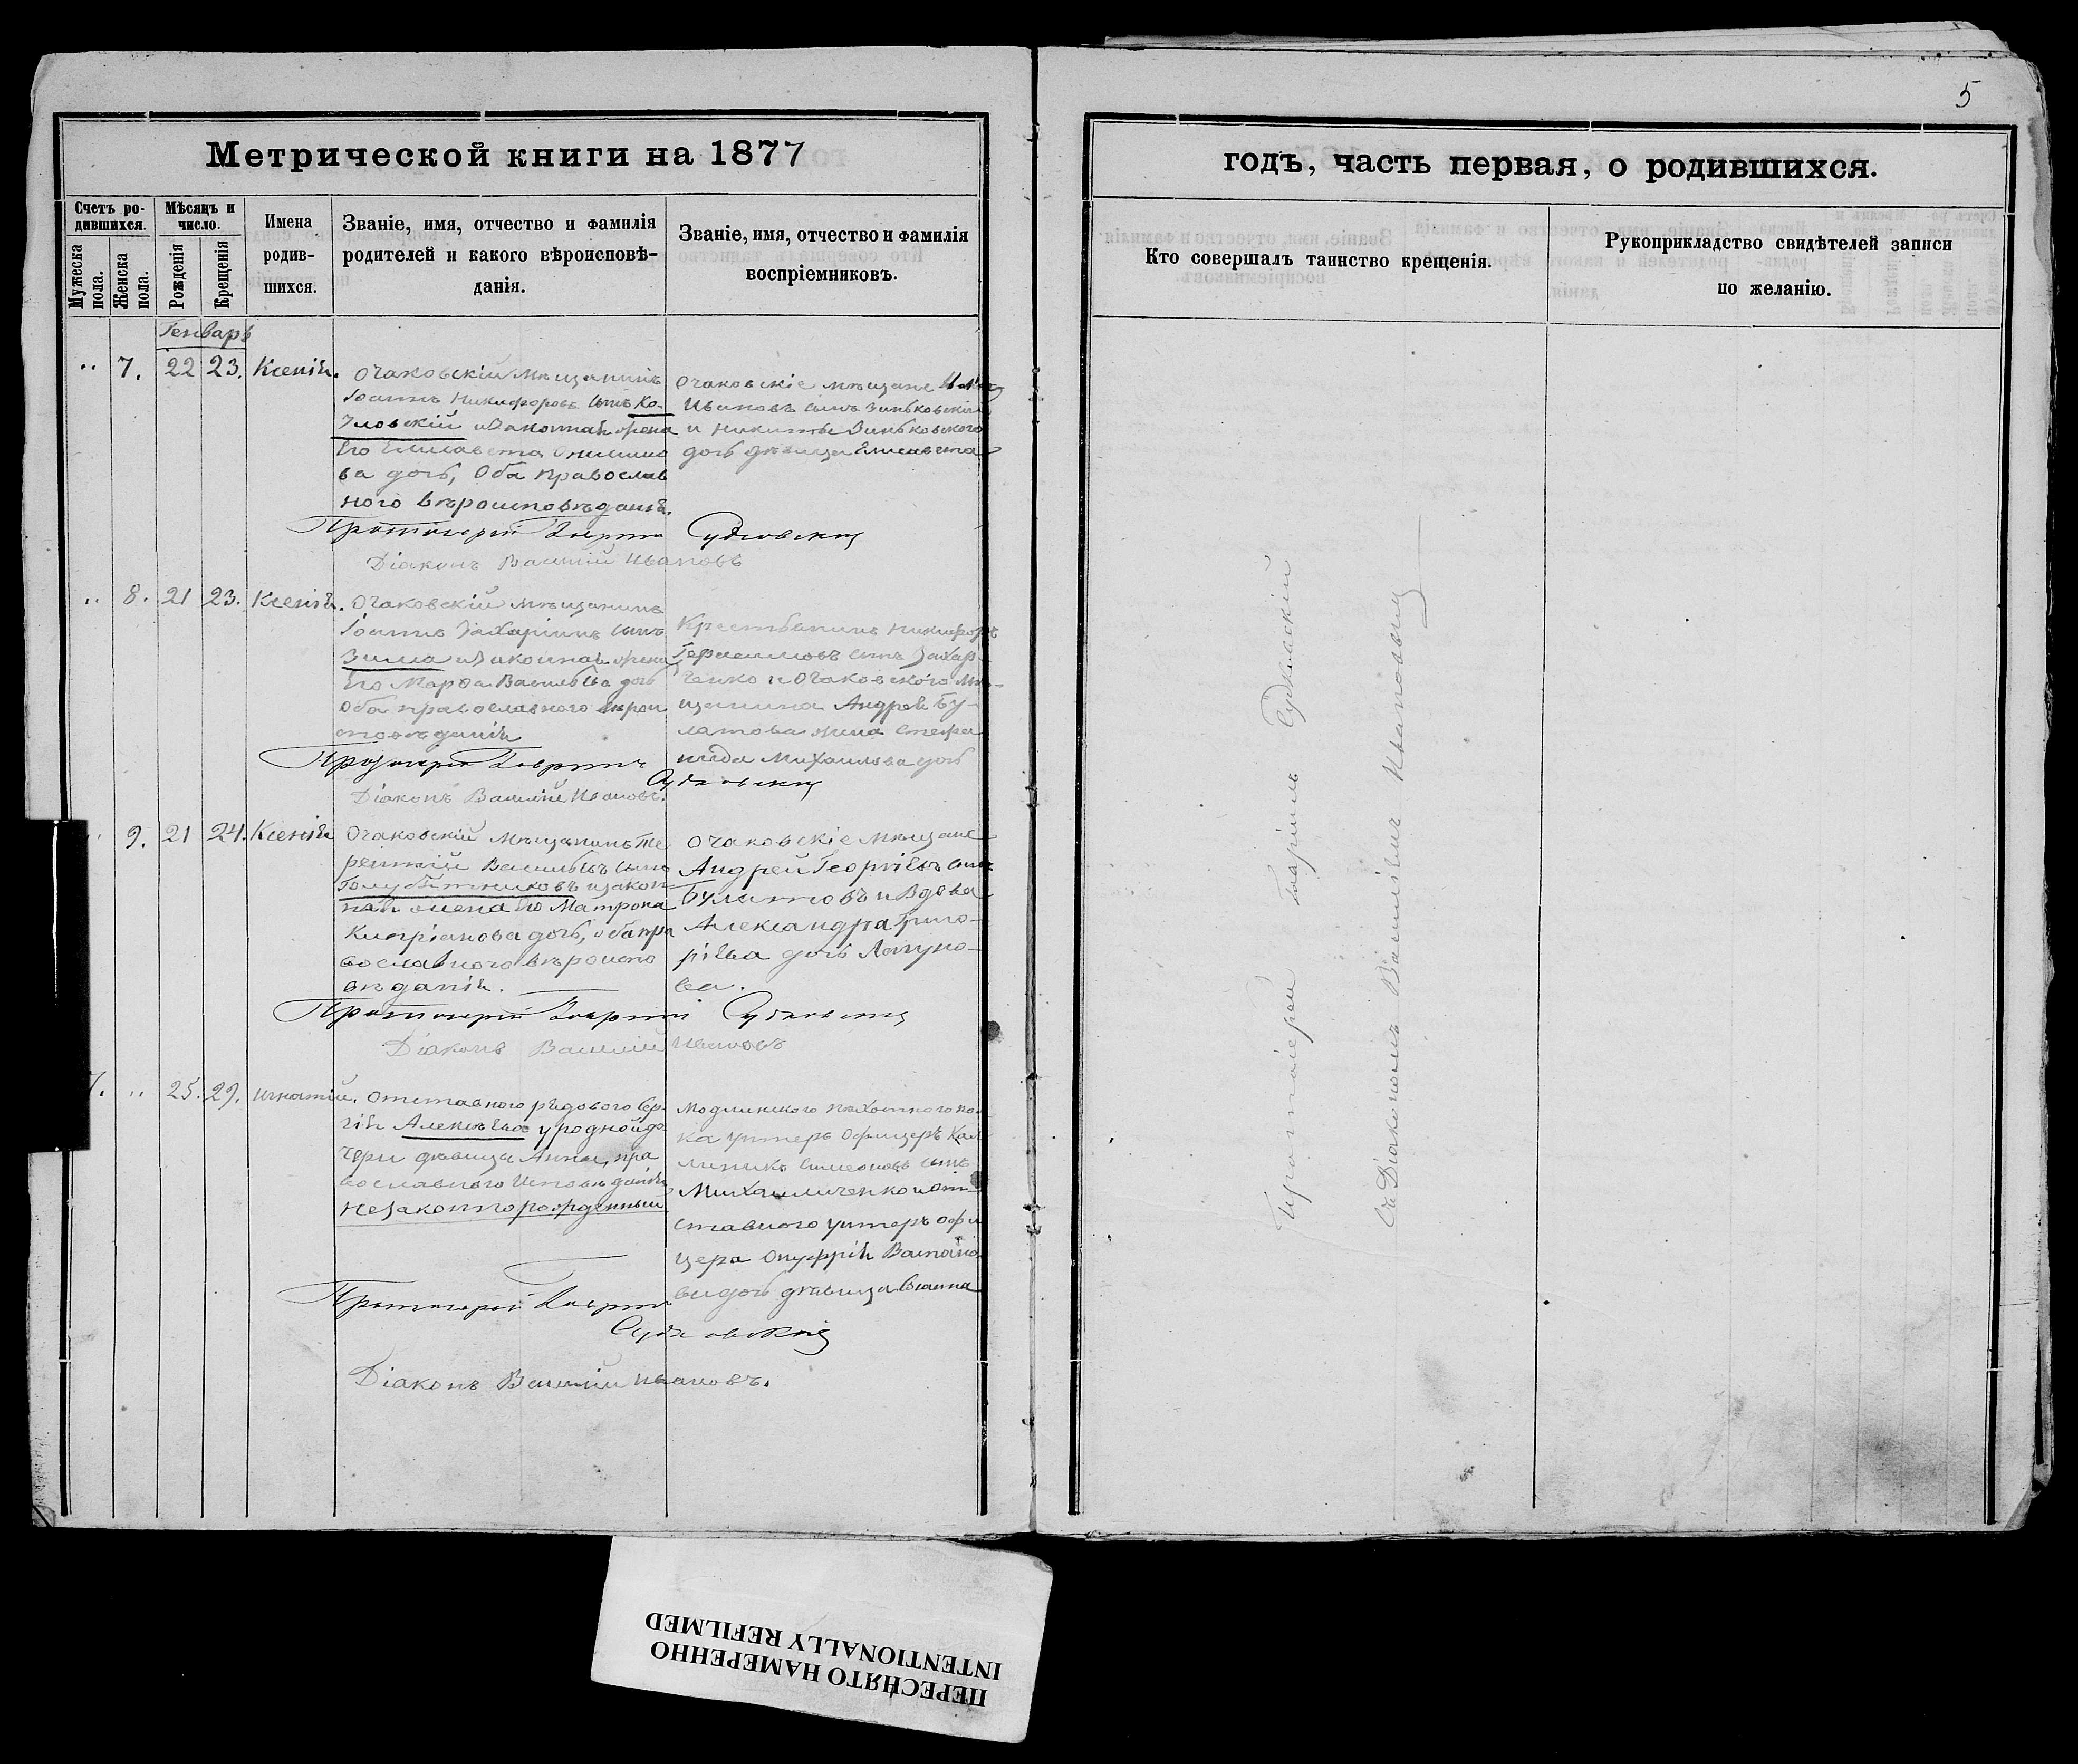 5
Метрической книги на 1877
годъ, часть первая, о родившихся.
Счетъ ро-
дившихся.
Мужеска
пола.
Женска
пола.
Мѣсяцъ и
число.
Рожденія
Крещенія
Имена
родив-
шихся.
Званіе, имя, отчество и фамилія
родителей и какого вѣроисповѣ-
данія.
Званіе, имя, отчество и фамилія
воспріемниковъ.
Кто совершалъ таинство крещенія.
Рукоприкладство свидѣтелей записи
по желанію.
Генварь
" 7. 22 23. Ксенія.
Очаковскій мѣщанинъ
Іоаннъ Никифоровъ сынъ Ко-
зловскій и законная жена
Его Елисавета
ва дочь, Оба Православ
ного вѣроисповѣданія.
Очаковскіе мѣщане
Ивановъ сынъ Зиньковскій
и Никиты Зиньковского
дочь дѣвица Елисавета
Протоіерей Гавріилъ Судковскій
Діаконъ Василій Ивановъ
" 8. 21 23. Ксенія.
Очаковскій мѣщанинъ
Іоаннъ Захаріинъ сынъ
Зима и законная жена
Его Марѳа Васильева дочь
Оба православного вѣрои
сповѣданія
Крестьянинъ Никифоръ
Герасимовъ сынъ Захар-
ченко и Очаковского мѣ-
щанина Андрея Бу-
латова жена Стефа
нида Михайлова дочь
Протоіерей Гавріилъ
Судковскій
Діаконъ Василій Ивановъ.
" 9. 21 24. Ксенія
Очаковскій мѣщанинъ Те
рентій Васильевъ сынъ
Голубятниковъ и закон
ная жена Его Матрона
Кипріанова дочь, оба пра
вославного вѣроиспо
вѣданія.
Очаковскіе мѣщане
Андрей Георгіевъ сынъ
Булатовъ и Вдова
Александра Григо-
ріева дочь Лапуно-
ва.
Протоіерей Гавріилъ Судковскій
Діаконъ Василій Ивановъ
7. " 25. 29. Игнатій.
Отставного рядового Сер-
гія Алексѣева у родной до
чери дѣвицы Анны, пра
вославного Исповѣданія
незаконнорожденный
Модлинского пѣхотного пол
ка унтеръ Офицеръ Кал
линикъ Симеоновъ сынъ
Михайличенко и от-
ставного унтеръ офи
цера Онуфрія
вы дочь дѣвица
Протоіерей Гавріилъ
Судковскій
Діаконъ Василій Ивановъ.
Протоіерей Гавріилъ Судковскій
съ Діакономъ Василіемъ Ивановымъ
ПЕРЕСНЯТО НАМЕРЕННО
INTENTIONALLY REFILMED